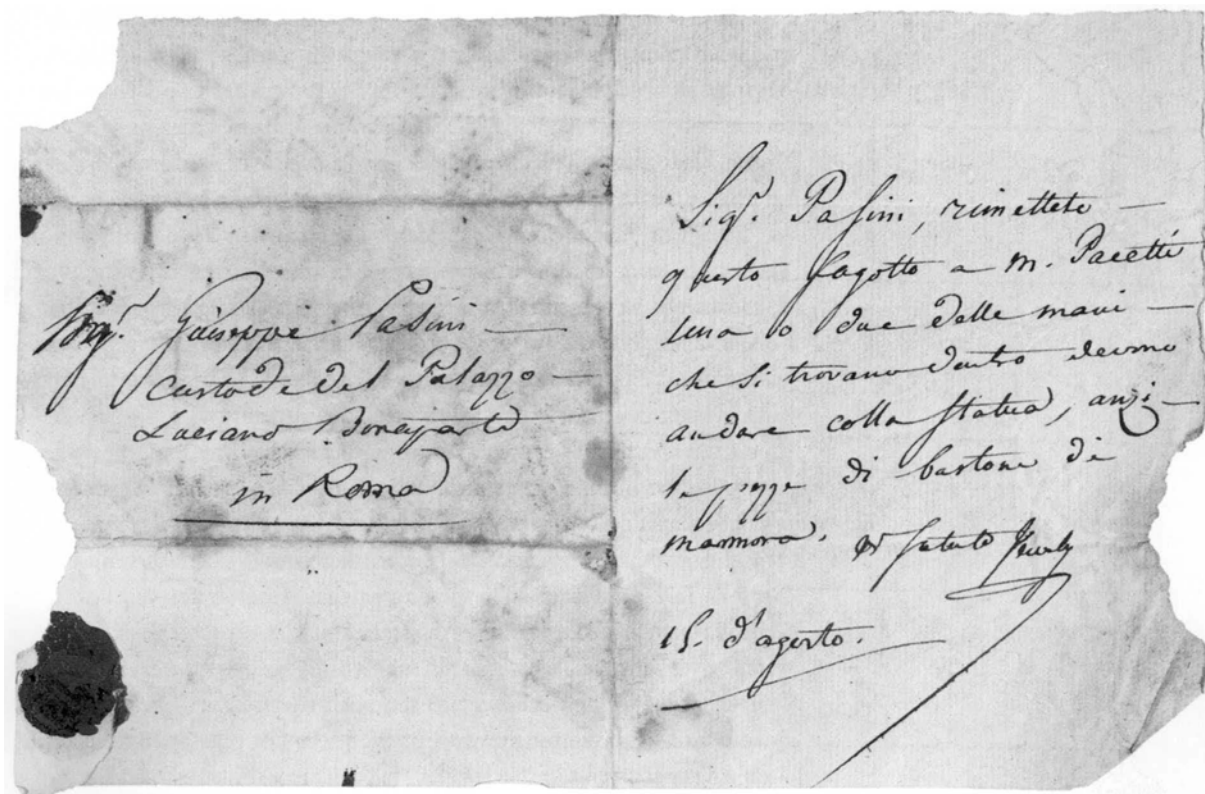 Sigr. Giuseppe Pasini —
Custode del Palazzo —
Luciano Bonaparte
in Roma
Sigr. Pasini, rimettete —
questo fagotto a m. Pacetti
una o due delle mani —
che si trovano dentro devono
andare colla statua, anzi —
le pezze di bastone di
marmora.
15. d'agosto.